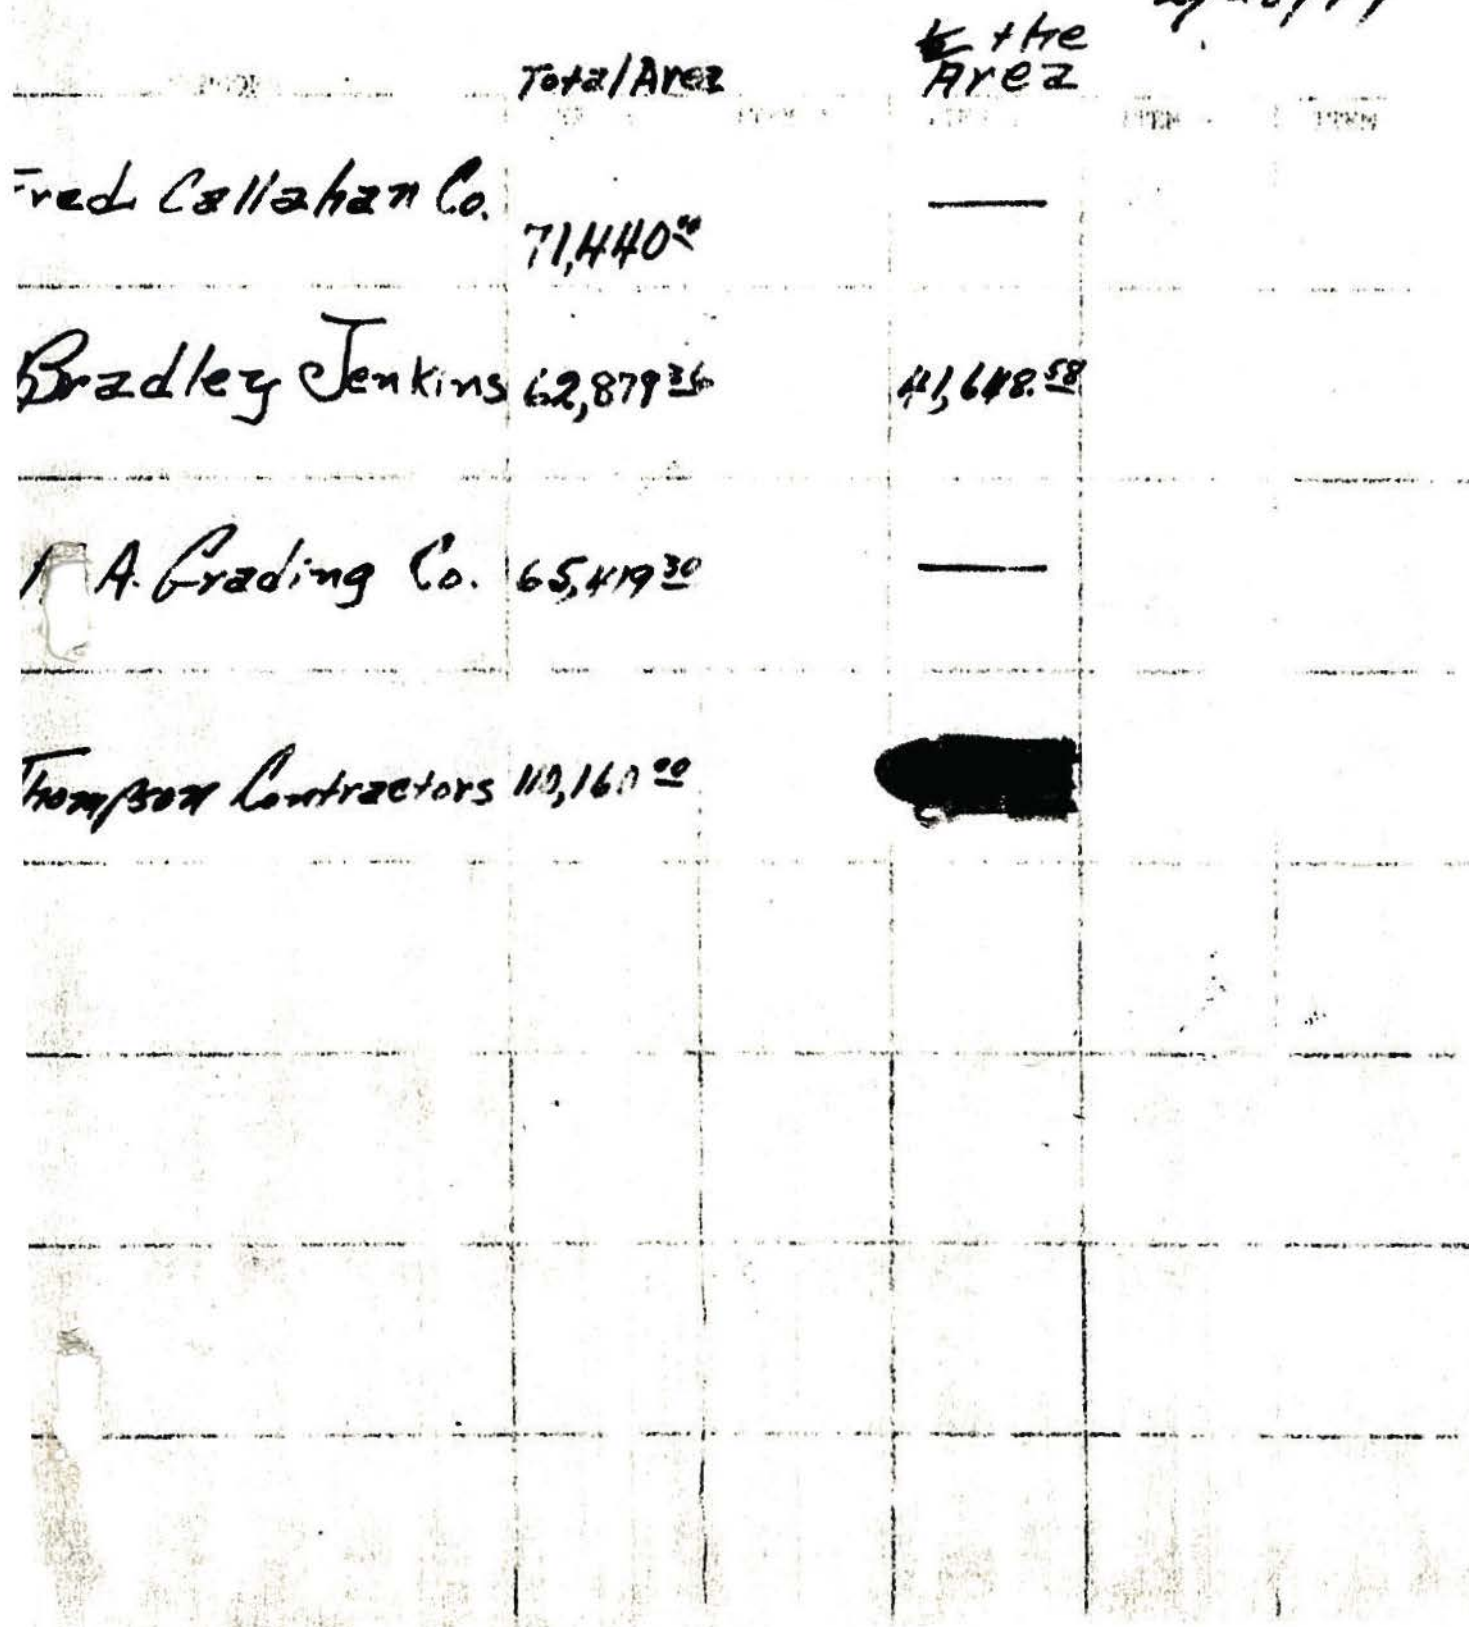 the
Total Area Area
Fred Callahan Co.
71,440.00
Bradley Jenkins 62,879 36 41,648.58
A. Grading Co. 65,419 30
Thompson Contractors 110,160 00